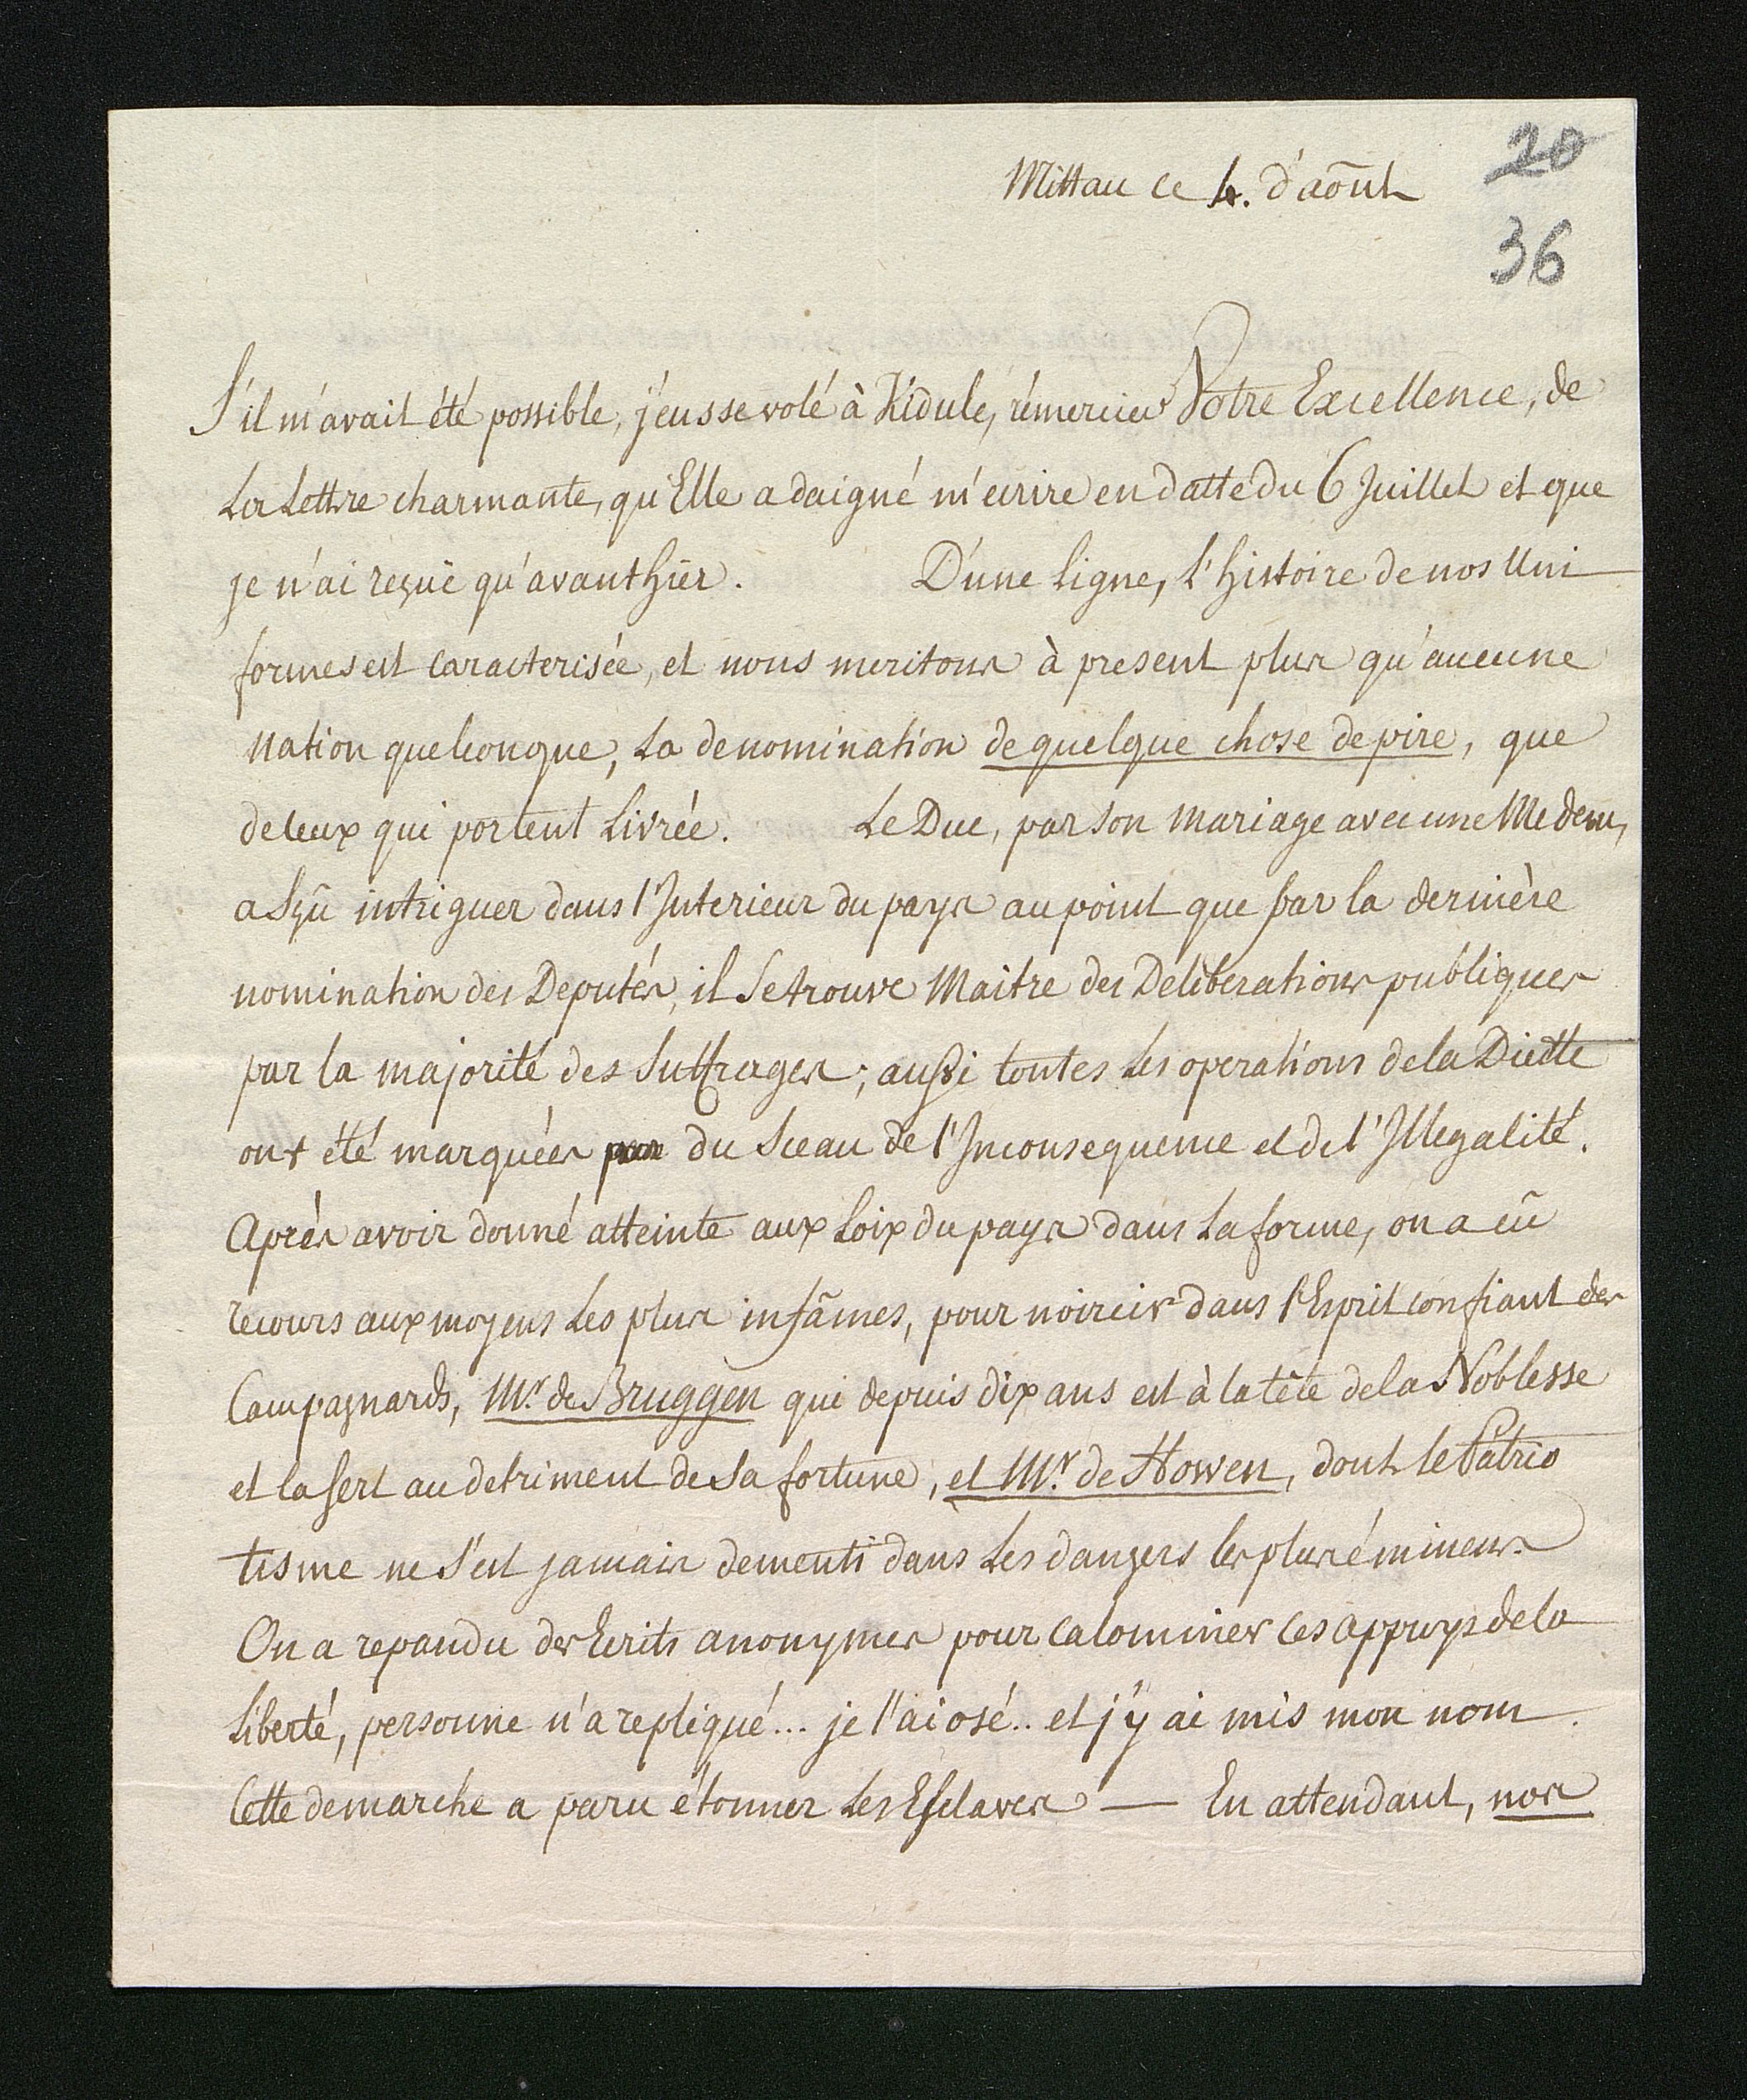 Mittau ce 4. d'aoùt
20
36
S'il m'avait été possible, j'eusse volé à Kidule, rémercier Votre Excellence, de
La Lettre charmante, qu'Elle a daigné m'ecrire en datte du 6 Juillet et que
je n'ai reçuë qu'avanthier. D'une ligne, l'histoire de nos Uni
formes est caracterisée, et nous meritons à present plus qu'aucune
Nation quelconque, La denomination de quelque chose de pire, que
de ceux qui portent Livrée. Le Duc, par son Mariage avec une Medem,
a Sçû intriguer dans l'Interieur du pays au point que par la dernière
nomination des Deputés, il Se trouve Maitre des Deliberations publiques
par la majorité des Suffrages; aussi toutes Les operations de la Diette
ont été marquées par du Sceau de l'Inconsequence et de l'Illegalité.
Après avoir donné atteinte aux Loix du pays dans La forme, on a eû
recours aux moyens Les plus infâmes, pour noircir dans l'Esprit confiant des
Campagnards, Mr. de Bruggen qui depuis dix ans est à la tête de la Noblesse
et la sert au detriment de Sa fortune, et Mr. de Howen, dont le Patrio
tisme ne S'est jamais dementi dans Les dangers les plus émineurs
On a repandu des Ecrits anonymes pour Calominier ces appuys de la
Liberté, personne n'a repliqué... je l'ai osé.. et j'y ai mis mon nom.
Cette demarche a paru étonner Les Esclaves — En attendant, nos